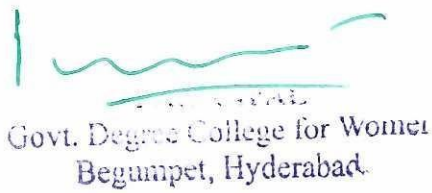 Govt. Degree College for Women
Begumpet, Hyderabad.